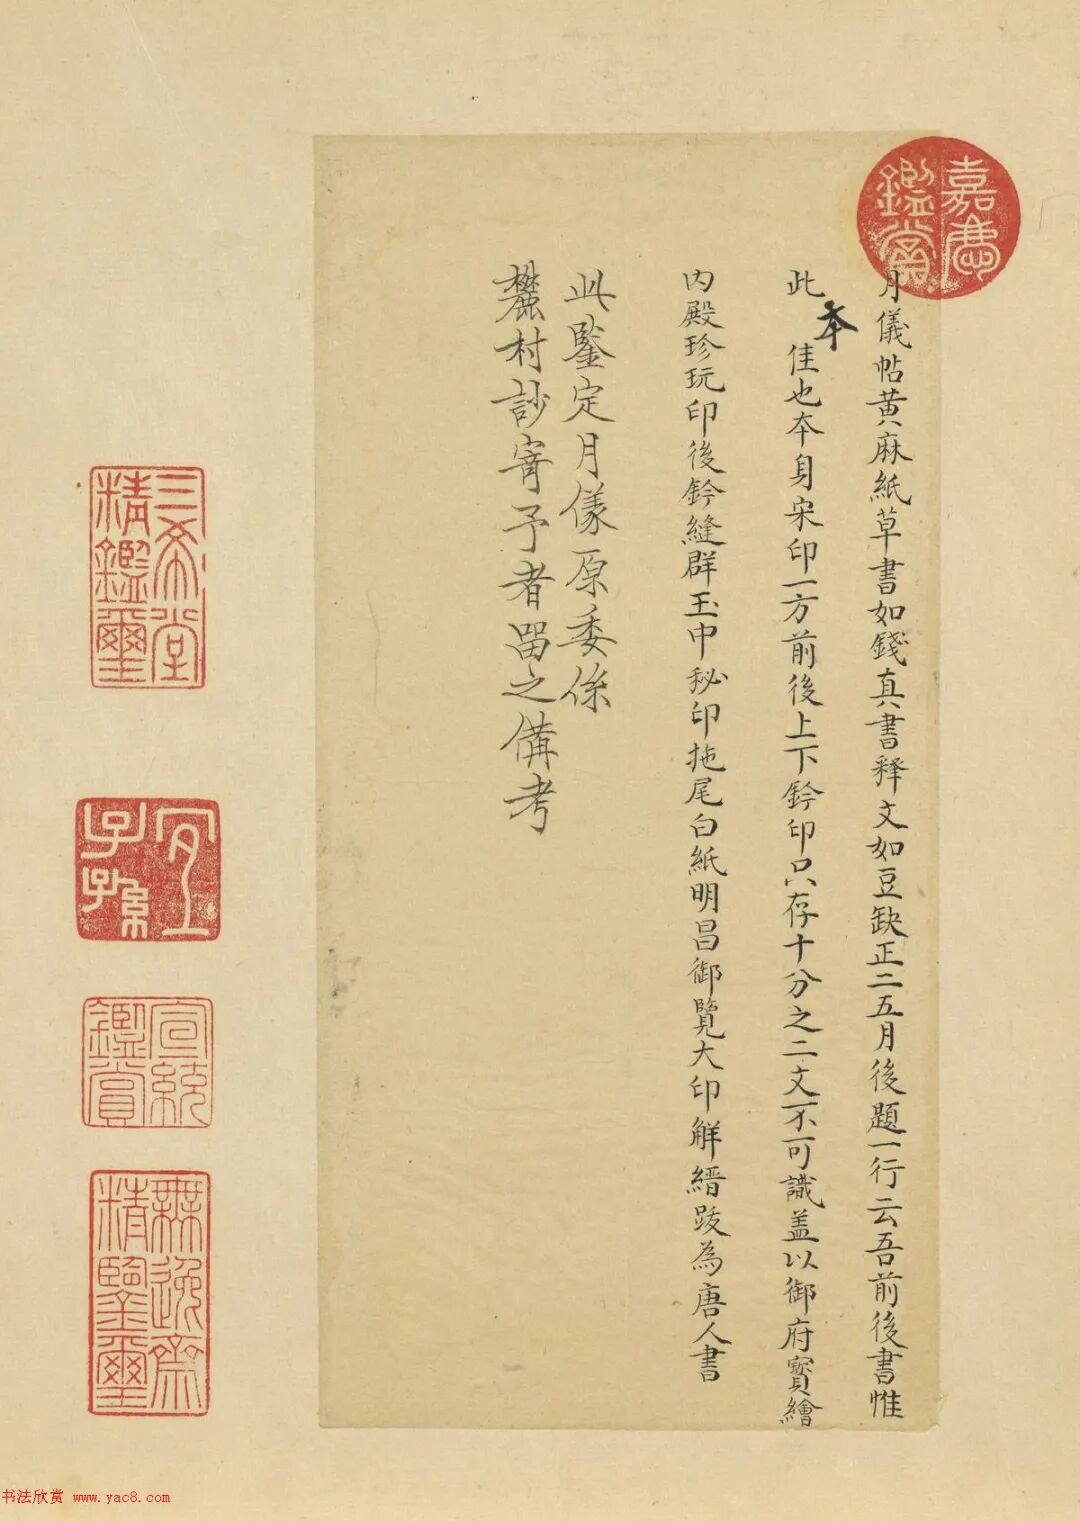 月儀帖黄麻紙草書如錢真書释文如豆缺正二五月後題一行云吾前後書惟
此本佳也夲身宋印一方前後上下鈐印只存十分之二文不可識盖以御府寳繪
内殿珍玩印後鈐縫群玉中秘印拖尾白紙明昌御覽大印觧縉跋為唐人書
此鑒定月儀原委係
麓村訬寄予者留之備考
嘉慶
鑑賞
三希堂
精鑑璽
宜子孫
宣統
鑑賞
無逸齋
精鑒璽
书法欣赏 www.yac8.com